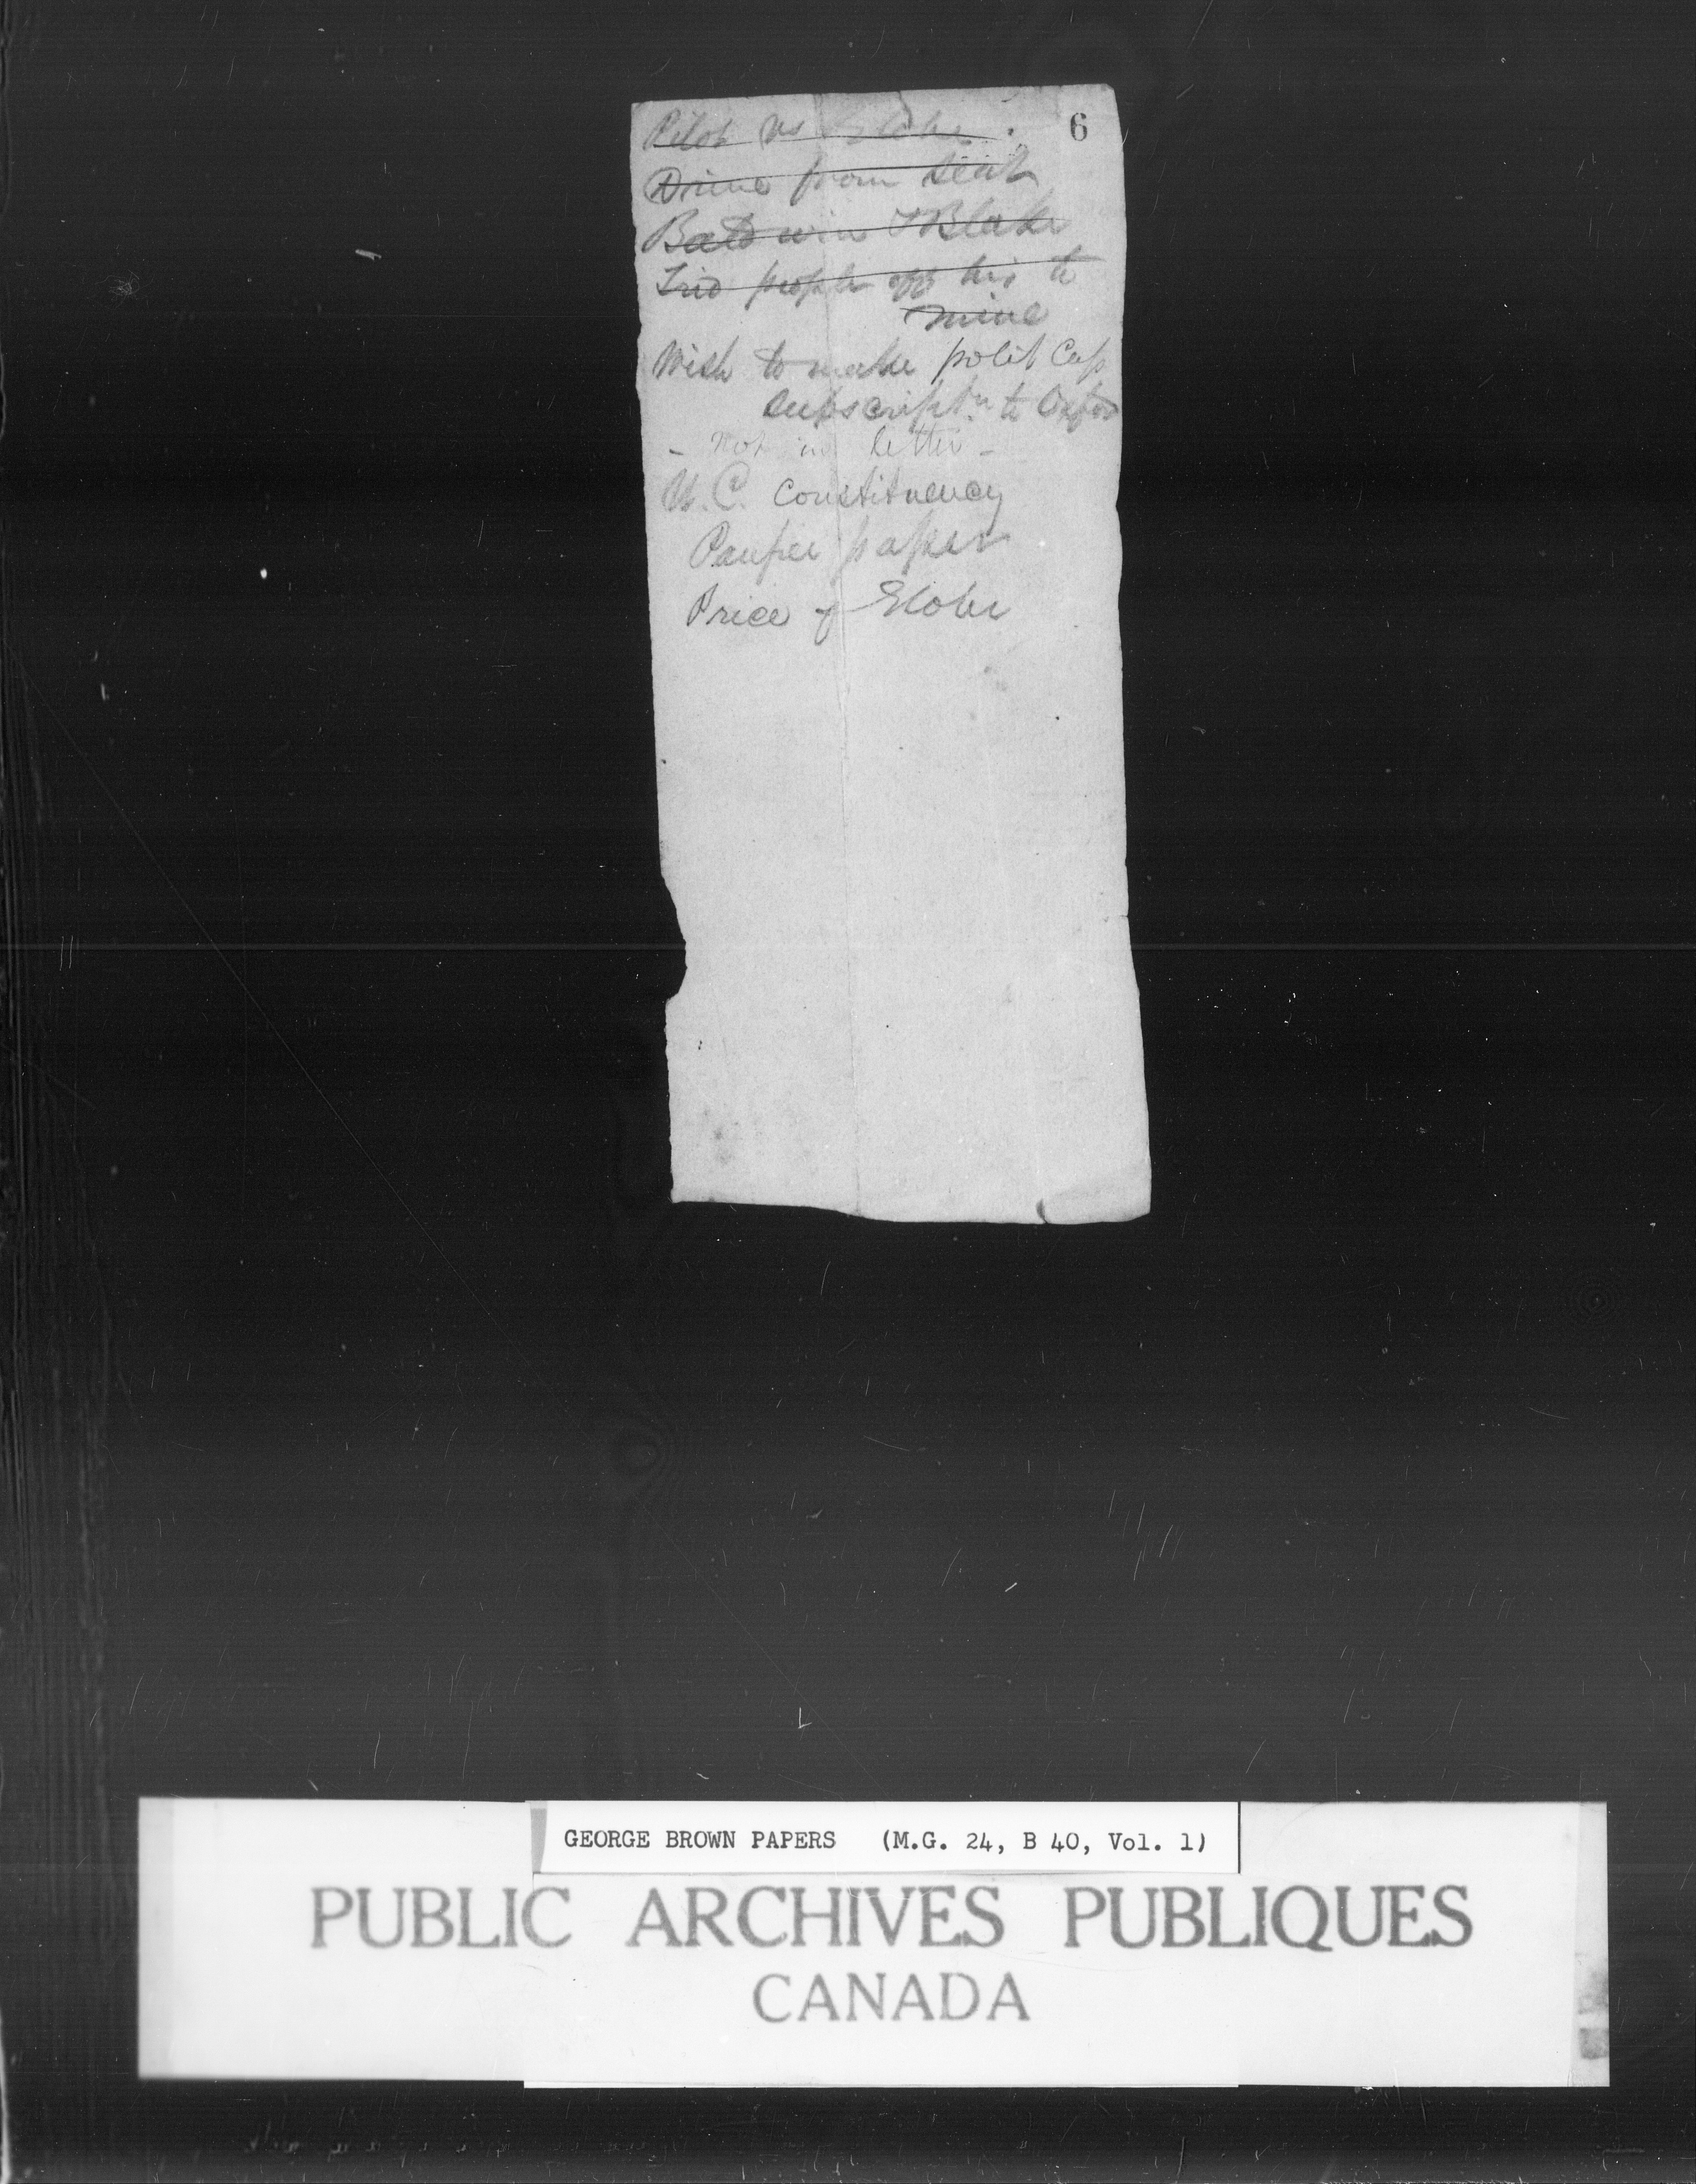 6
Pilot vs Globe.
Drive from seat
Baldwin & Blake
Trid people off his to
mine
Wish to make polit Cap
subscriptn to Oxford
- Not in letter -
U.C. Constituency
paper
Price of Globe
GEORGE BROWN PAPERS (M.G. 24, B 40, Vol. 1)
PUBLIC ARCHIVES PUBLIQUES
CANADA